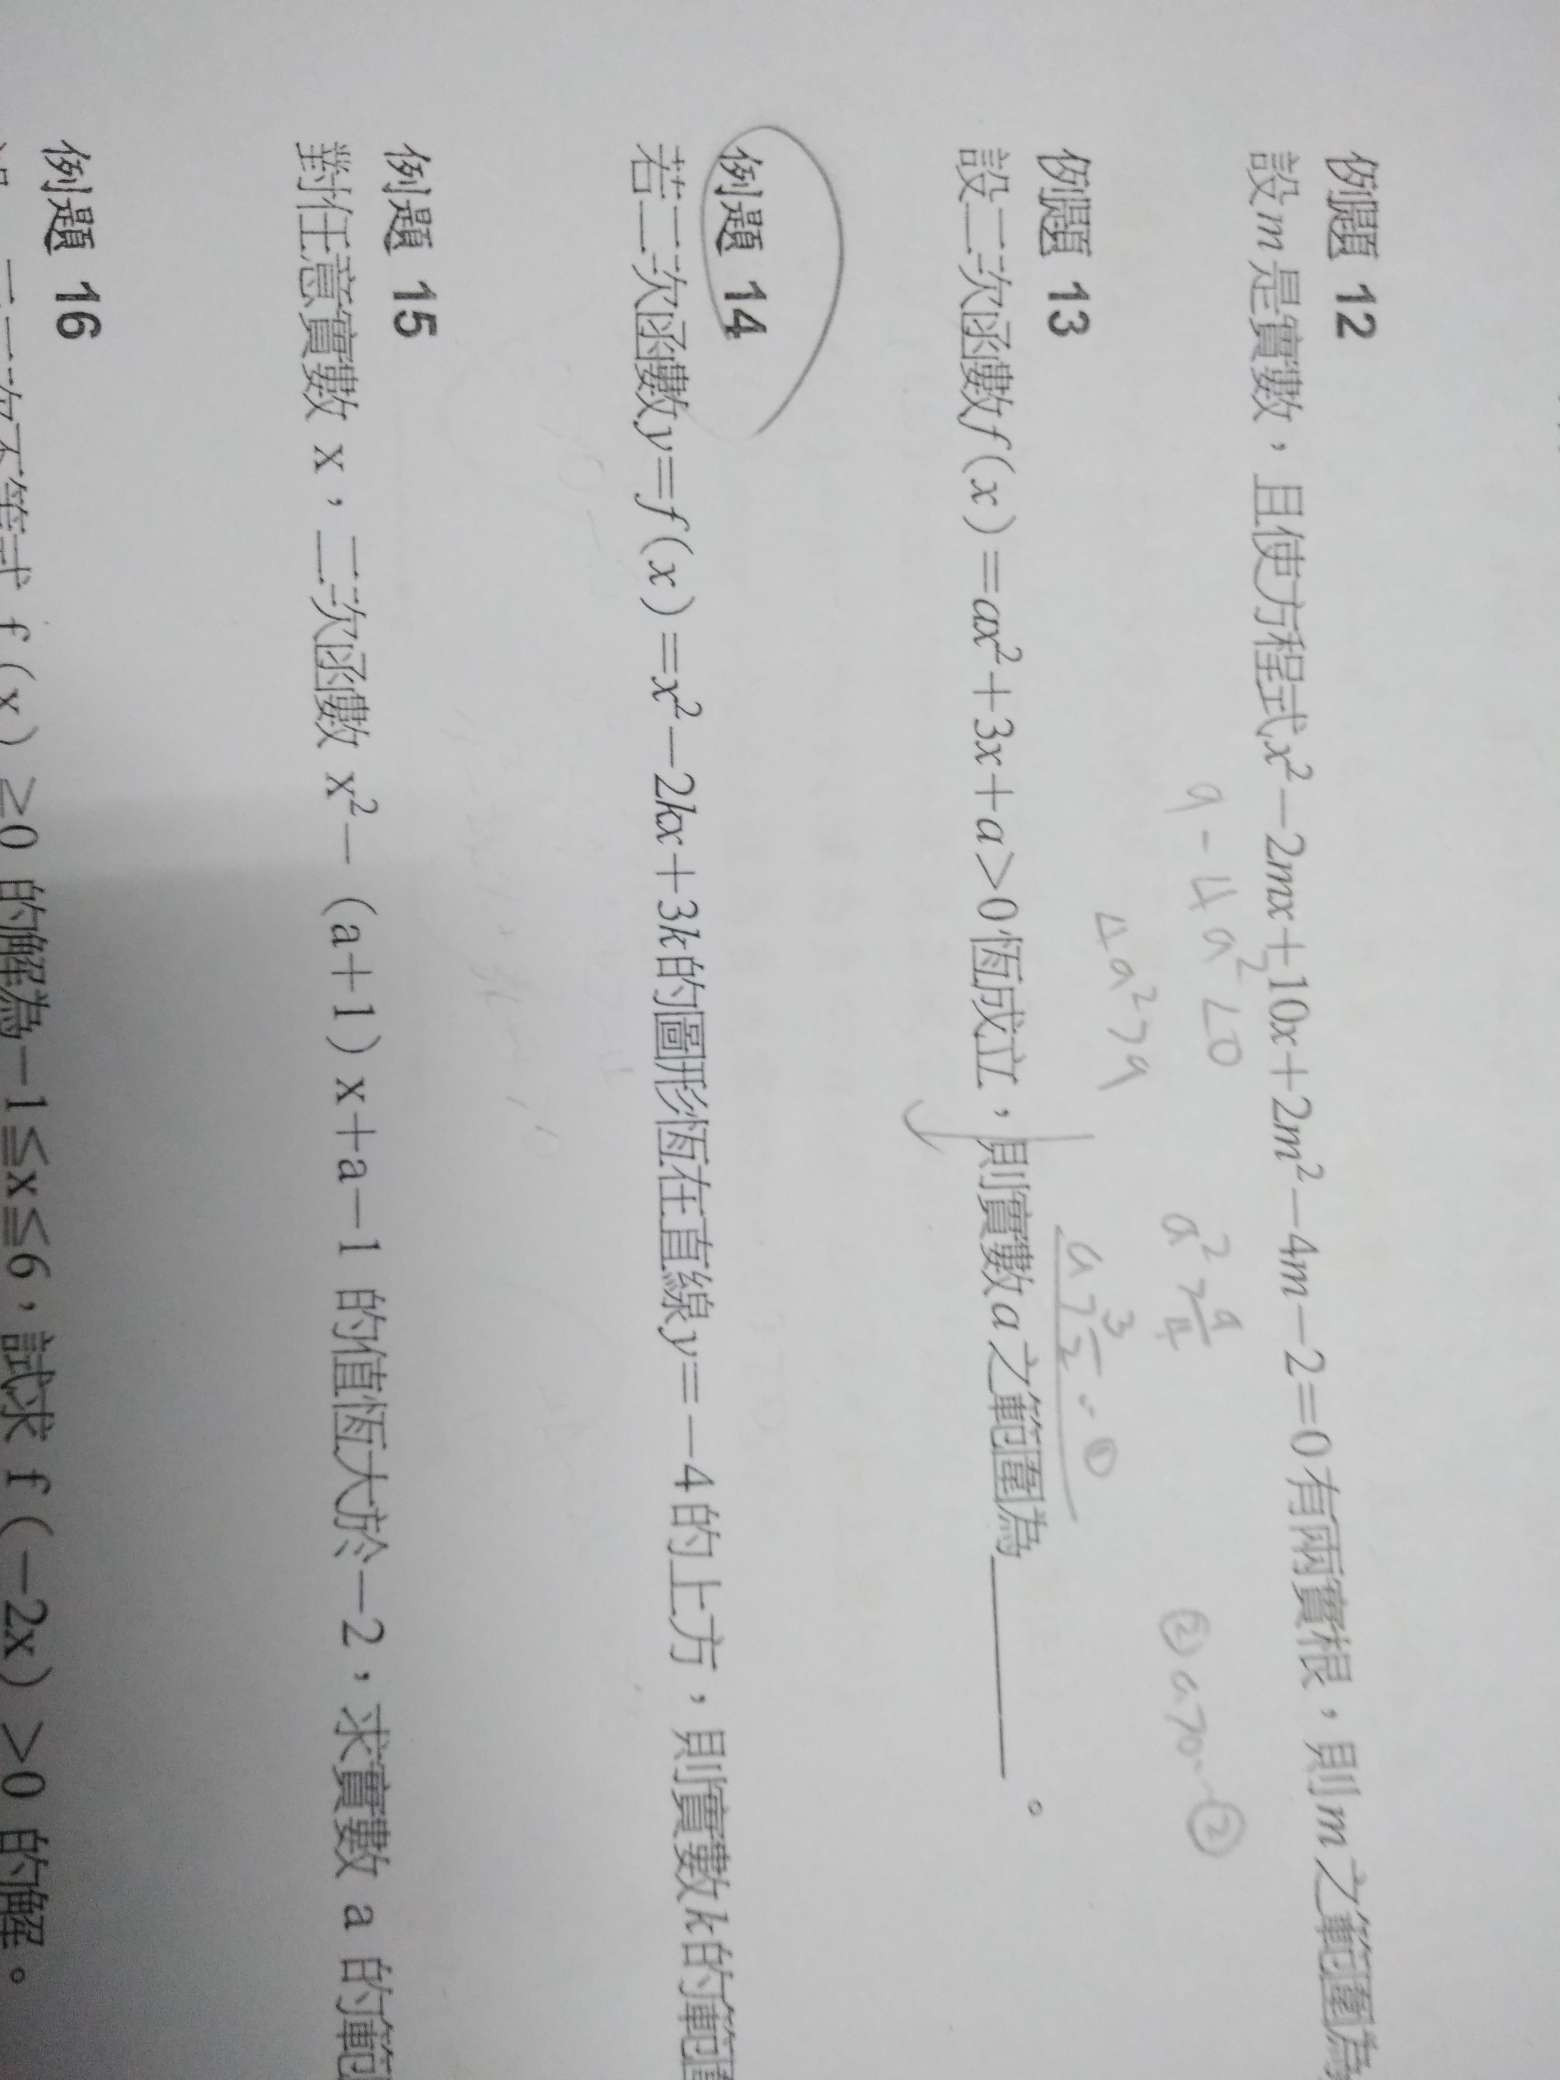 例題 12
設m是實數，且使方程式x²－2mx＋10x＋2m²－4m－2＝0有兩實根，則m之範圍為
9-4a²<0
4a²>9
a²>9/4
a>3/2 --①
② a>0--②
例題 13
設二次函數f(x)＝ax²＋3x＋a＞0恆成立，則實數a之範圍為＿＿＿＿。
例題 14
若二次函數y＝f(x)＝x²－2kx＋3k的圖形恆在直線y＝－4的上方，則實數k的範圍
例題 15
對任意實數 x，二次函數 x²－(a＋1)x＋a－1 的值恆大於－2，求實數 a 的範
例題 16
二次不等式 f(x)≥0 的解為－1≦x≦6，試求 f(－2x)＞0 的解。